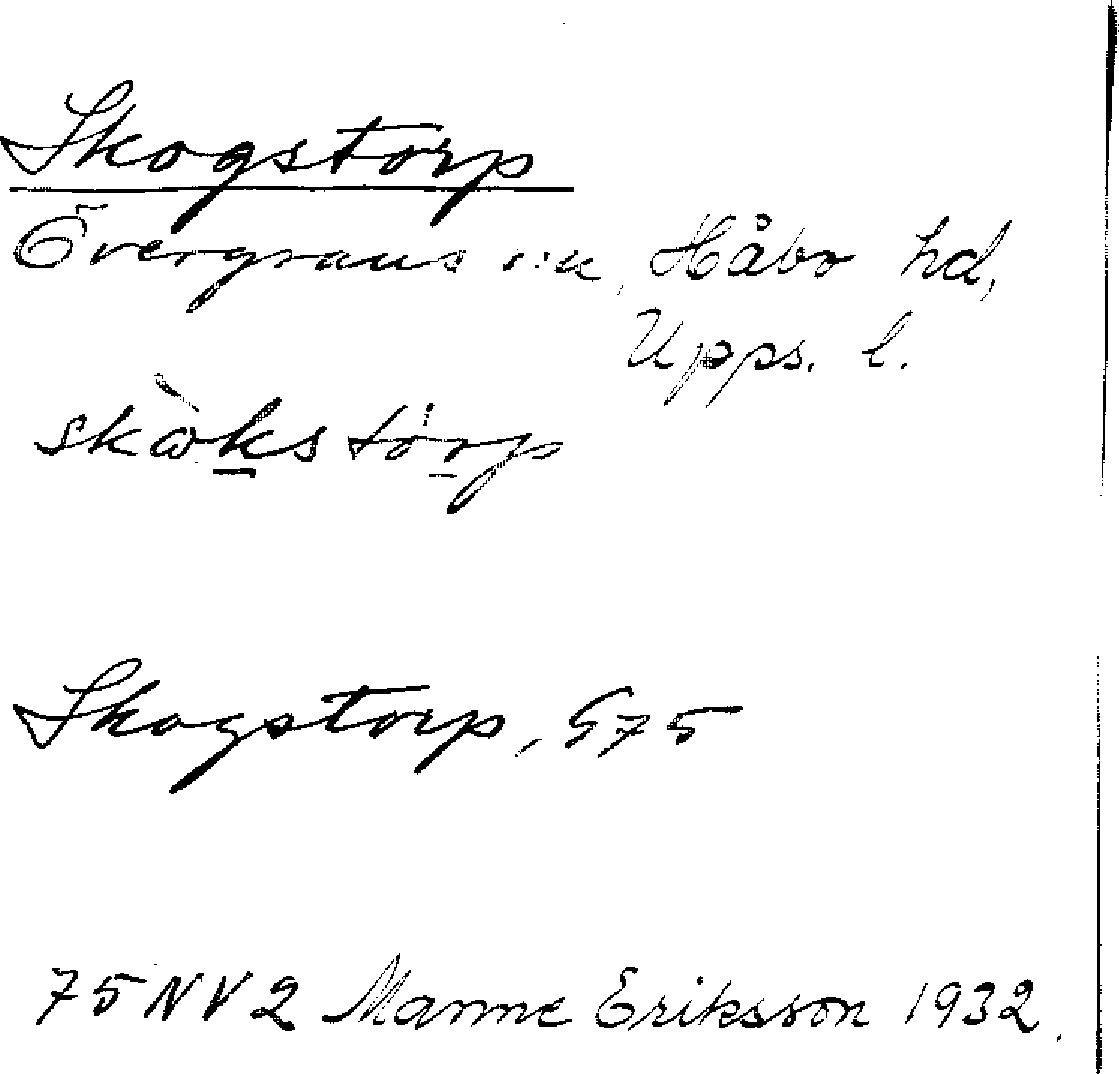 Skogstorp
Övergrans sn, Håbo hd,
Upps. l.
Skogstorp, G75
75NV2 Manne Eriksson 1932.